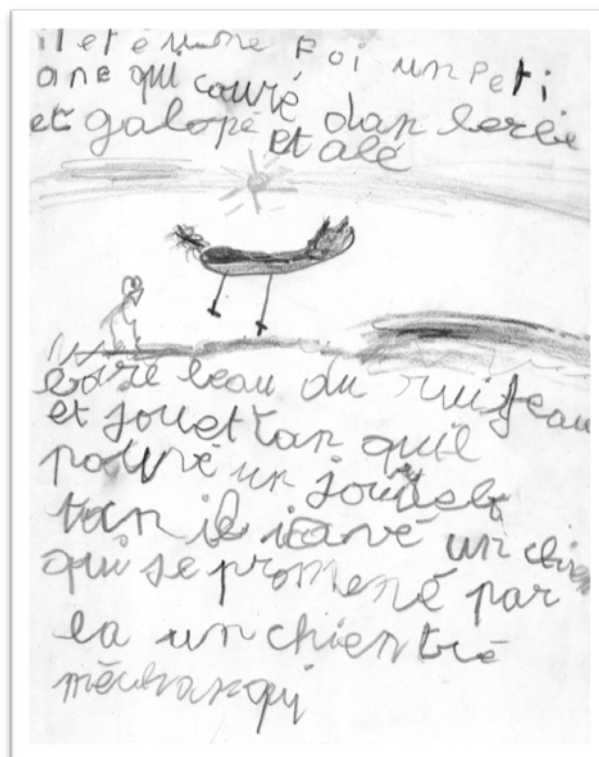 il et é une Foi un Peti
ane qui couré dan lerbe
et galopé
et alé
boire leau du ruisseau
et jouet tan quil
pouvé un jour
tan il iavé un chien
qui se promené par
la un chien trè
méchan qui